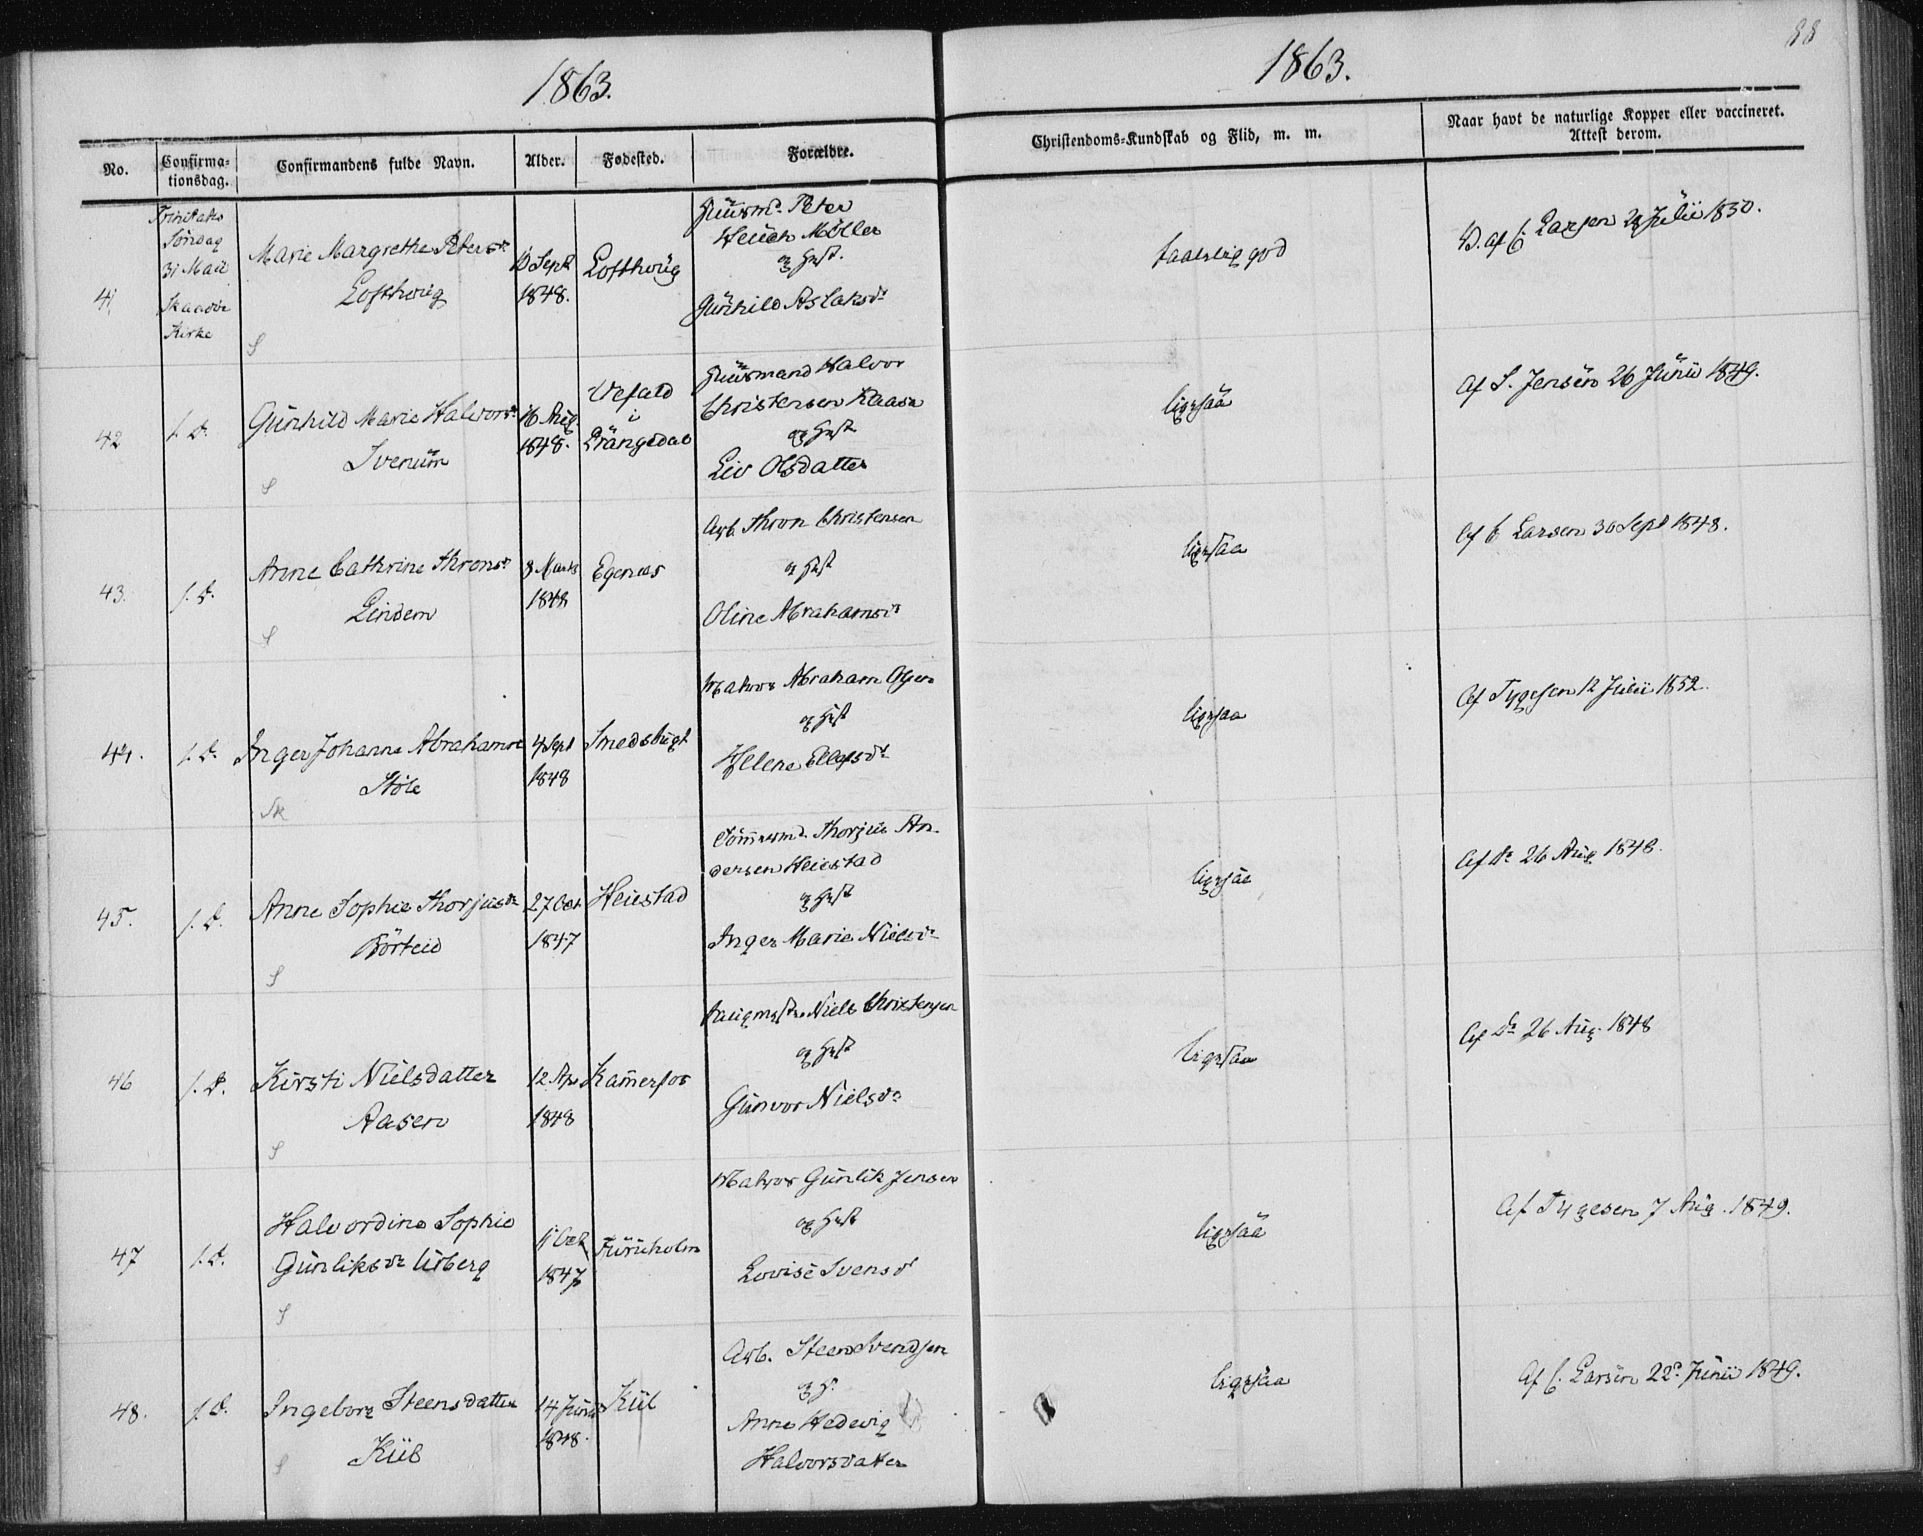 1863.
1863.
88
No.
Confirma-
tionsdag.
Confirmandens fulde Navn.
Alder.
Fødested.
Forældre.
Christendoms-Kundskab og Flid, m. m.
Naar havt de naturlige Kopper eller vaccineret.
Attest derom.
41
Trinitatis
Söndag
31 Mai
Skaadöe
Kirke
Marie Margrethe Petersdr
Lofthoüg
S
10 Sept
1848.
Lofthoüg
Huüsmd. Peter
Möller
og Hust.
Günhild Aslaksdr
taalelig god
V. af C. Larsen 28 Julii 1850.
42
s. D.
Günhild Marie Halvorsdr
Svenüm
S
16 Aüg.
1848.
Vefald
i
Drangedal
Huüsmand Halvor
Christensen Raasa
og Hust
Liv Olsdatter
ligesaa
Af S. Jensen 26 Jünii 1849.
43.
s. D.
Anne Cathrine Thronsdr
Lindem
S
3 Marts
1848
Egenæs
Arb. Thron Christensen
og Hust
Oline Abrahamsdr
ligesaa
Af C. Larsen 30 Sept 1848.
44.
s. D.
Inger Johanne Abrahamsdr
Stöle
Sk
4 Sept
1848
Smedsbügt
Matros Abraham Olsen
og Hust
Helene Ellefsdr
ligesaa
Af Tygesen 12 Julii 1852.
45.
s. D.
Anne Sophie Thorjüsdr
Börteid
S
27 Oct.
1847
Heiestad
Tömmermd. Thorjus An-
dersen Heiestad
og Hust
Inger Marie Nielsdr
ligesaa
Af Do 26 Aug. 1848.
46
s. D.
Kirsti Nielsdatter
Aasen
S
12 Apr
1848
Kamerfos
Niels Christensen
og Hust
Günvor Nielsdr
ligesaa
Af Do 26 Aug. 1848
47
s. D.
Halvordine Sophie
Günliksdr Urberg
S
11 Oct
1847
Füruholm
Matros Günlik Jensen
og Hust
Lovise Svensdr
ligesaa
Af Tygesen 7 Aug. 1849.
48.
s. D.
Ingeborg Steensdatter
Kiil
S
14 Junii
1848.
Kiil
Arb. Steen Svendsen
og H.
Anne Hedevig
Halvorsdatter
ligesaa
Af C. Larsen 22 Junii 1849.